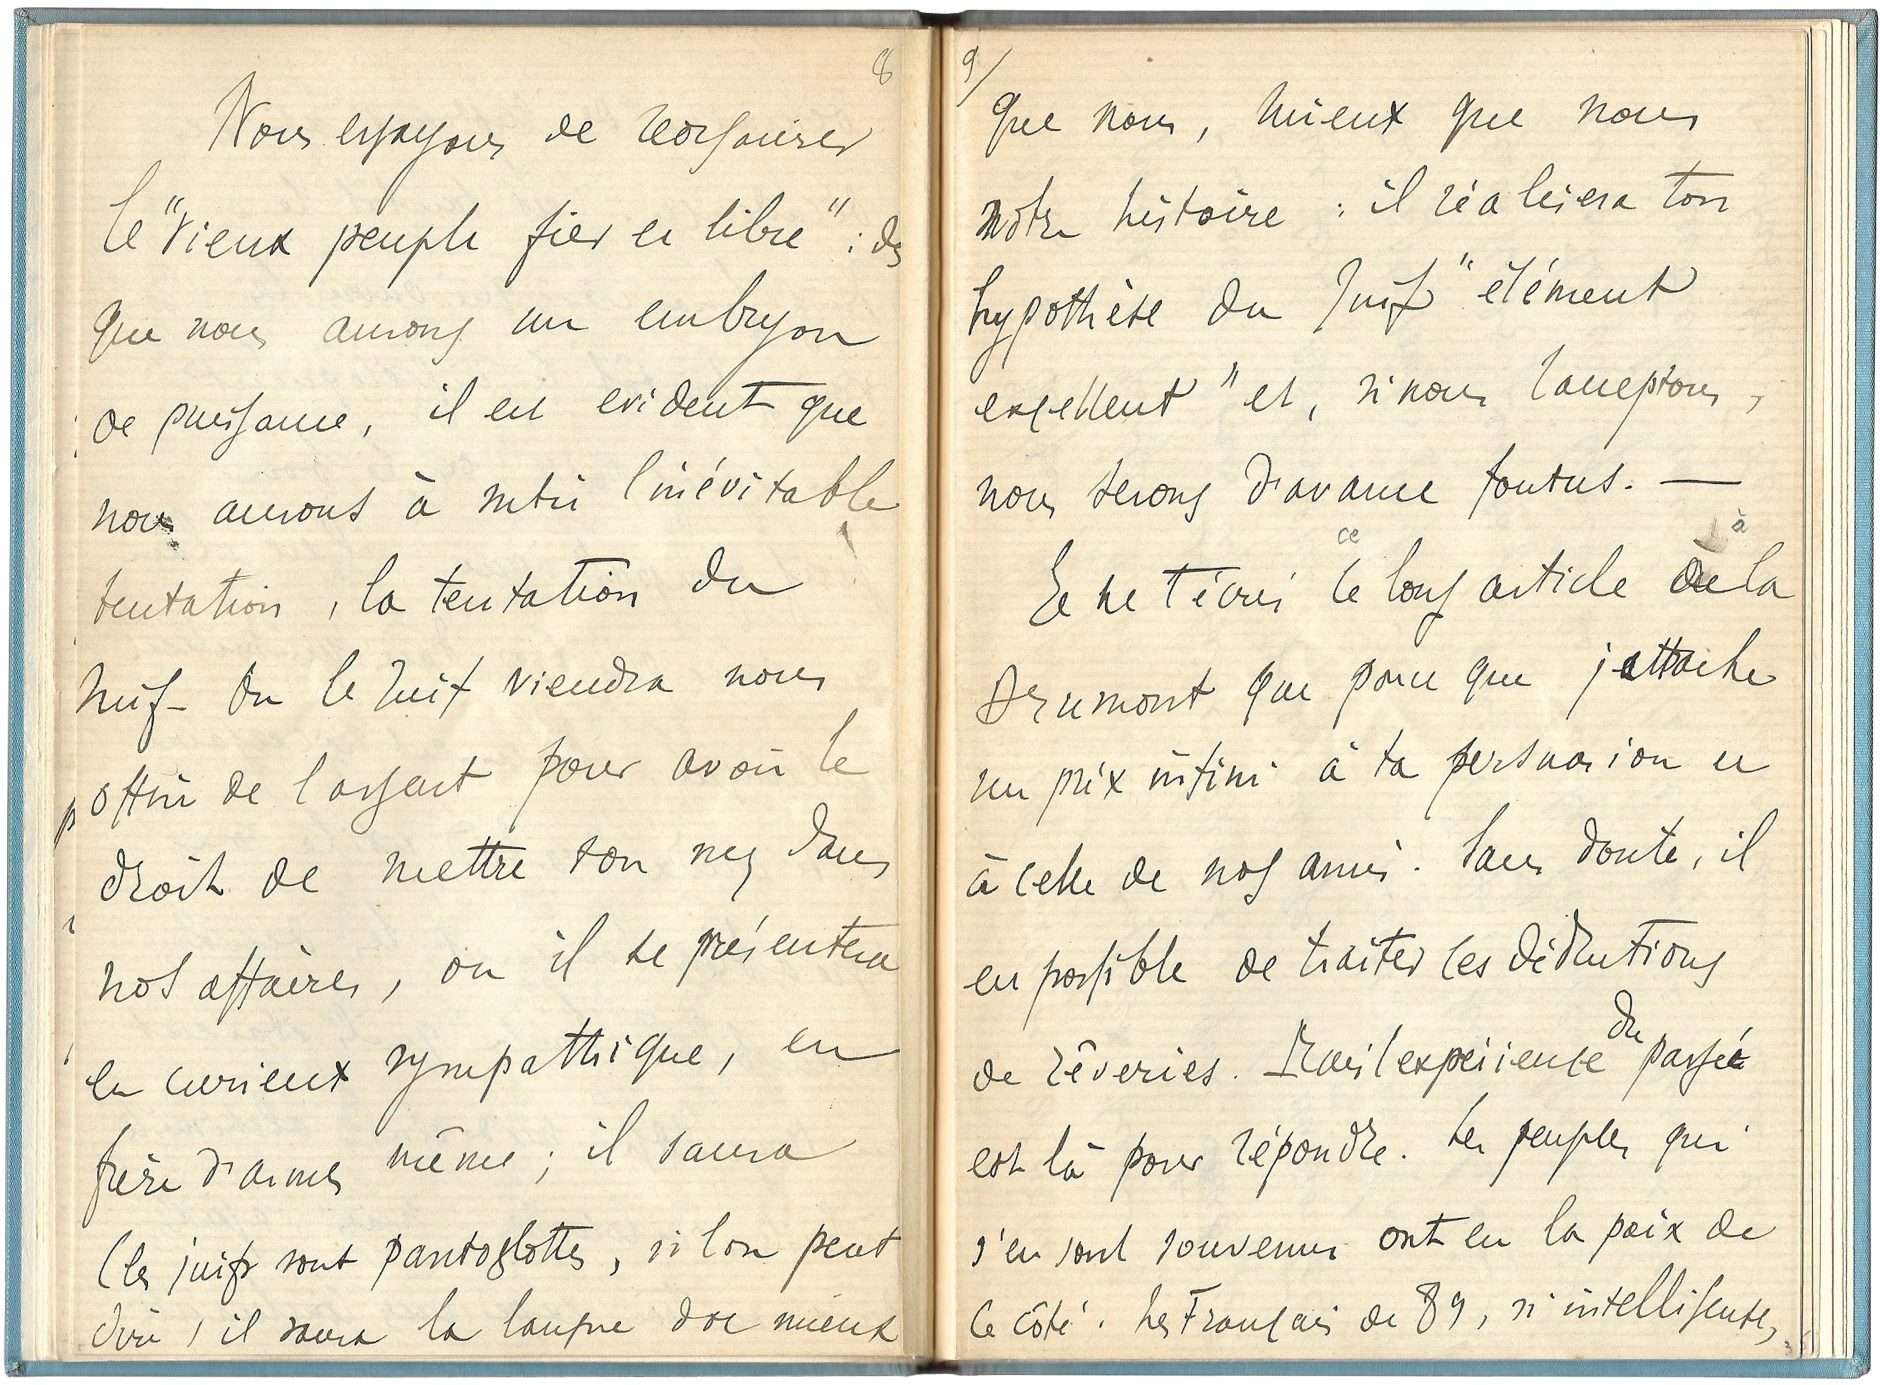 8
Nous essayons de réorganiser
le "vieux peuple fier et libre" : dès
que nous aurons un embryon
de puissance, il est evident que
nous aurons à subir l'inévitable
tentation, la tentation du
Juif - Ou le Juif viendra nous
offrir de l'argent pour avoir le
droit de mettre son nez dans
nos affaires, ou il se présentera
en curieux sympathique, en
frère d'armes même ; il saura
(les juifs sont pantoglottes, si l'on peut
dire) il saura la langue d'oc mieux
9/
que nous, mieux que nous
notre histoire : il réalisera ton
hypothèse du Juif "élément
excellent" et, si nous l'acceptons,
nous serons d'avance foutus. —
Je ne t'écris ce long article à la
Drumont que parce que j'attache
un prix infini à ta persuasion et
à celle de nos amis. Sans doute, il
est possible de traiter ces déductions
de rêveries. Mais l'expérience du passé
est là pour répondre. Les peuples qui
s'en sont souvenus ont eu la paix de
ce côté. Les Français de 89, si intelligents,